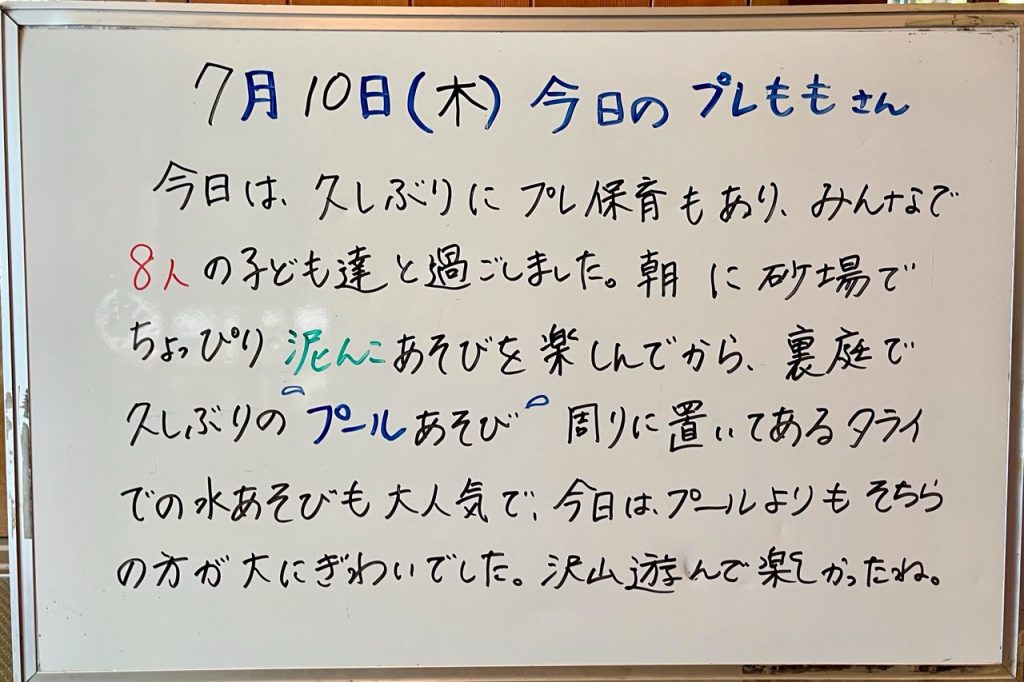 7月10日(木) 今日の プレももさん
今日は、久しぶりに プレ保育もあり、みんなで
8人の子ども達と過ごしました。朝 に 砂場で
ちょっぴり 泥んこあそびを楽しんでから、裏庭で
久しぶりの〝プールあそび〟 周りに置いてあるタライ
での水あそびも大人気で、今日は、プールよりもそちら
の方が大にぎわいでした。沢山遊んで楽しかったね。